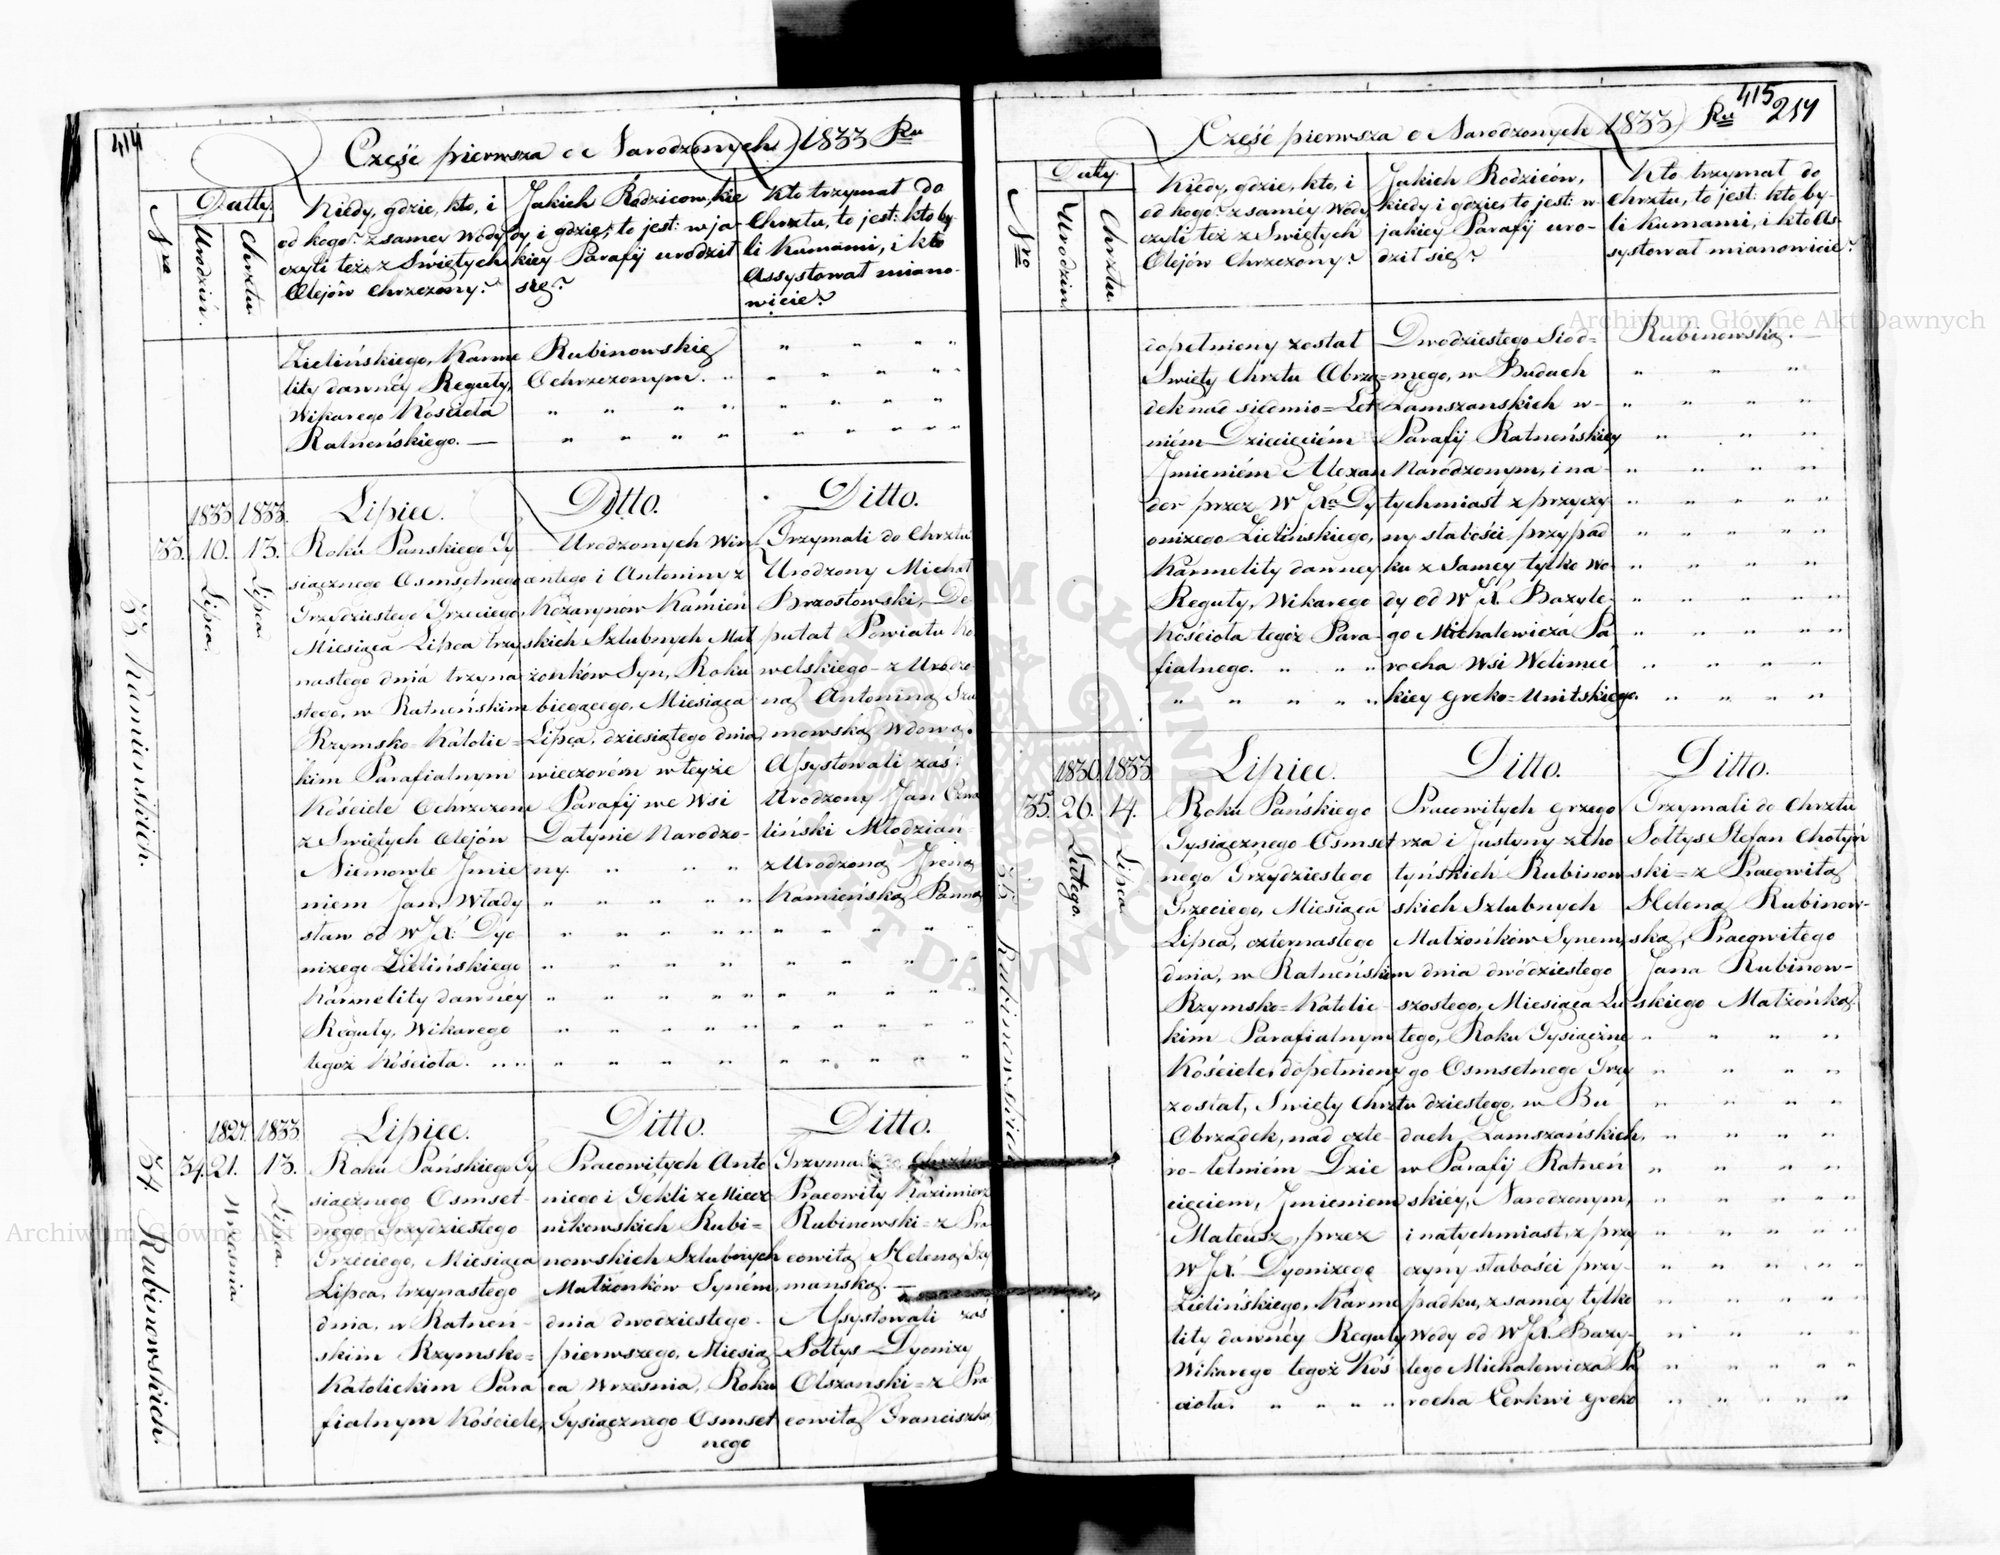 414
Część pierwsza o Narodzonych 1833 Ru
Nro
Datty.
Urodzin.
Chrztu.
Kiedy, gdzie, kto, i
od kogo? z samey Wody
czyli też z Świętych
Olejów Chrzczony?
Jakich Rodzicow, kie
dy i gdzie, to jest: w ja-
kiey Parafij urodził
się?
Kto trzymał do
Chrztu, to jest: kto by-
li Kumami, i kto
Assystował miano-
wicie?
Zielińskiego, Karme
lity dawnéy Reguły,
Wikarego Kościoła
Ratneńskiego. —
Rubinowskię
Ochrzczonym.
33 Kamieńskich.
33.
1833
10.
Lipca.
1833.
13.
Lipca
Lipiec.
Roku Panskiego Ty
siącznego Osmsetnego
Trzydziestego Trzeciego,
Miesiąca Lipca trzy
nastego dnia trzyna
stego, w Ratneńskim
Rzymsko-Katolic=
kim Parafialnym
Kościele Ochrzczone
z Świętych Olejów
Niemowle Jmie
niem Jan Włady
sław od WJX: Dyo-
nizego Zielińskiego
Karmelity dawnéy
Reguły, Wikarego
tegoż Kościoła.
Ditto.
Urodzonych Win
centego i Antoniny z
Kożarynów Kamień
skich Szlubnych Mał
żonków Syn, Roku
bieżącego, Miesiąca
Lipca, dziesiątego dnia
wieczorém w teyże
Parafij we Wsi
Datynie Narodzo-
ny.
Ditto.
Trzymali do Chrztu
Urodzony Michał
Brzostowski, De
putat Powiatu Ko
welskiego - z Urodzo
ną Antoniną Szu
mowską Wdową.
Assystowali zaś:
Urodzony Jan
liński Młodzian
z Urodzoną Jreną
Kamieńską Panną
34. Rubinowskich.
34.
1827.
21.
Wrzesnia
1833.
13.
Lipca.
Lipiec.
Roku Pańskiego Ty
siącznego Osmset-
nego Trzydziestego
Trzeciego, Miesiąca
Lipca, trzynastego
dnia, w Ratneń-
skim Rzymsko=
Katolickim Para
fialnym Kościele,
Ditto.
Pracowitych Anto
niego i Tekli z Miecz
nikowskich Rubi=
nowskich Szlubnych
Małżonków Syném,
dnia dwodziestego-
pierwszego, Miesią
ca Wrzesnia, Roku
Tysiącznego Osmset
nego
Ditto.
Trzymali do Chrztu
Pracowity Kazimierz
Rubinowski = z Pra
cowitą Heleną Szy
manską. —
Assystowali zaś
Sołtys Dyonizy
Olszanski = z Pra
cowitą Franciszką
415
217
Część pierwsza o Narodzonych 1833 Ru
Nro
Datty.
Urodzin.
Chrztu.
Kiedy, gdzie, kto, i
od kogo? z saméy Wody
czyli też z Swiętych
Olejów Chrzczony?
Jakich Rodziców,
kiedy i gdzie, to jest: w-
jakiéy Parafij uro-
dził się?
Kto trzymał do
Chrztu, to jest: kto by-
li Kumami, i kto As-
systował mianowicie?
dopełniony został
Swięty Chrztu Obrzą=
dek nad siedmio=Let
niém Dziecięciém
Jmieniém Alexan
der przez WJXa Dy
onizego Zielińskiego,
Karmelity dawney
Reguły, Wikarego
Kościoła tegoż Para-
fialnego.
Dwodziestego Siód=
mego, w Budach
Zamszanskich w-
Parafij Ratneńskiey
Narodzonym, i na-
tychmiast z przyczy
ny słabości przypad
ku z Samey tylko Wo-
dy od WJX. Bazyle-
go Michalewicza Pa
rocha Wsi Welimec
kiey Greko-Unitskiego.
Rubinowską. —
35 Rubinowskich
35.
1830.
26.
Lutego.
1833
14.
Lipca
Lipiec.
Roku Pańskiego
Tysiącznego Osmset
nego Trzydziestego
Trzeciego, Miesiąca
Lipca, czternastego
dnia, w Ratneńskim
Rzymsko=Katolic-
kim Parafialnym
Kościele, dopełniony
został, Swięty Chrztu
Obrządek, nad czte-
ro-letniém Dzie
cięciem, Jmieniem
Mateusz, przez
WJX. Dyonizego
Zielińskiego, Karme
lity dawnéy Reguły
Wikarego tegoż Koś
cioła.
Ditto.
Pracowitych Grzego
rza i Justyny z Cho
tyńskich Rubinow
skich Szlubnych
Małżonków Synem,
dnia dwódziestego
szostego, Miesiąca Lu
tego, Roku Tysiączne
go Osmsetnego Trzy
dziestego, w Bu
dach Zamszańskich,
w Parafij Ratneń
skiéy, Narodzonym,
i natychmiast, z przy
czyny słabości przy-
padku, z saméy tylko
Wody od WJX. Bazy-
lego Michalewicza Pa
rocha Cerkwi Greko
Ditto.
Trzymali do Chrztu
Sołtys Stefan Chotyń
ski = z Pracowitą
Heleną Rubinow-
ską, Pracowitego
Jana Rubinow-
skiego Małżonką.
Archiwum Główne Akt Dawnych
Archiwum Główne Akt Dawnych
ARCHIWUM GŁÓWNE AKT DAWNYCH